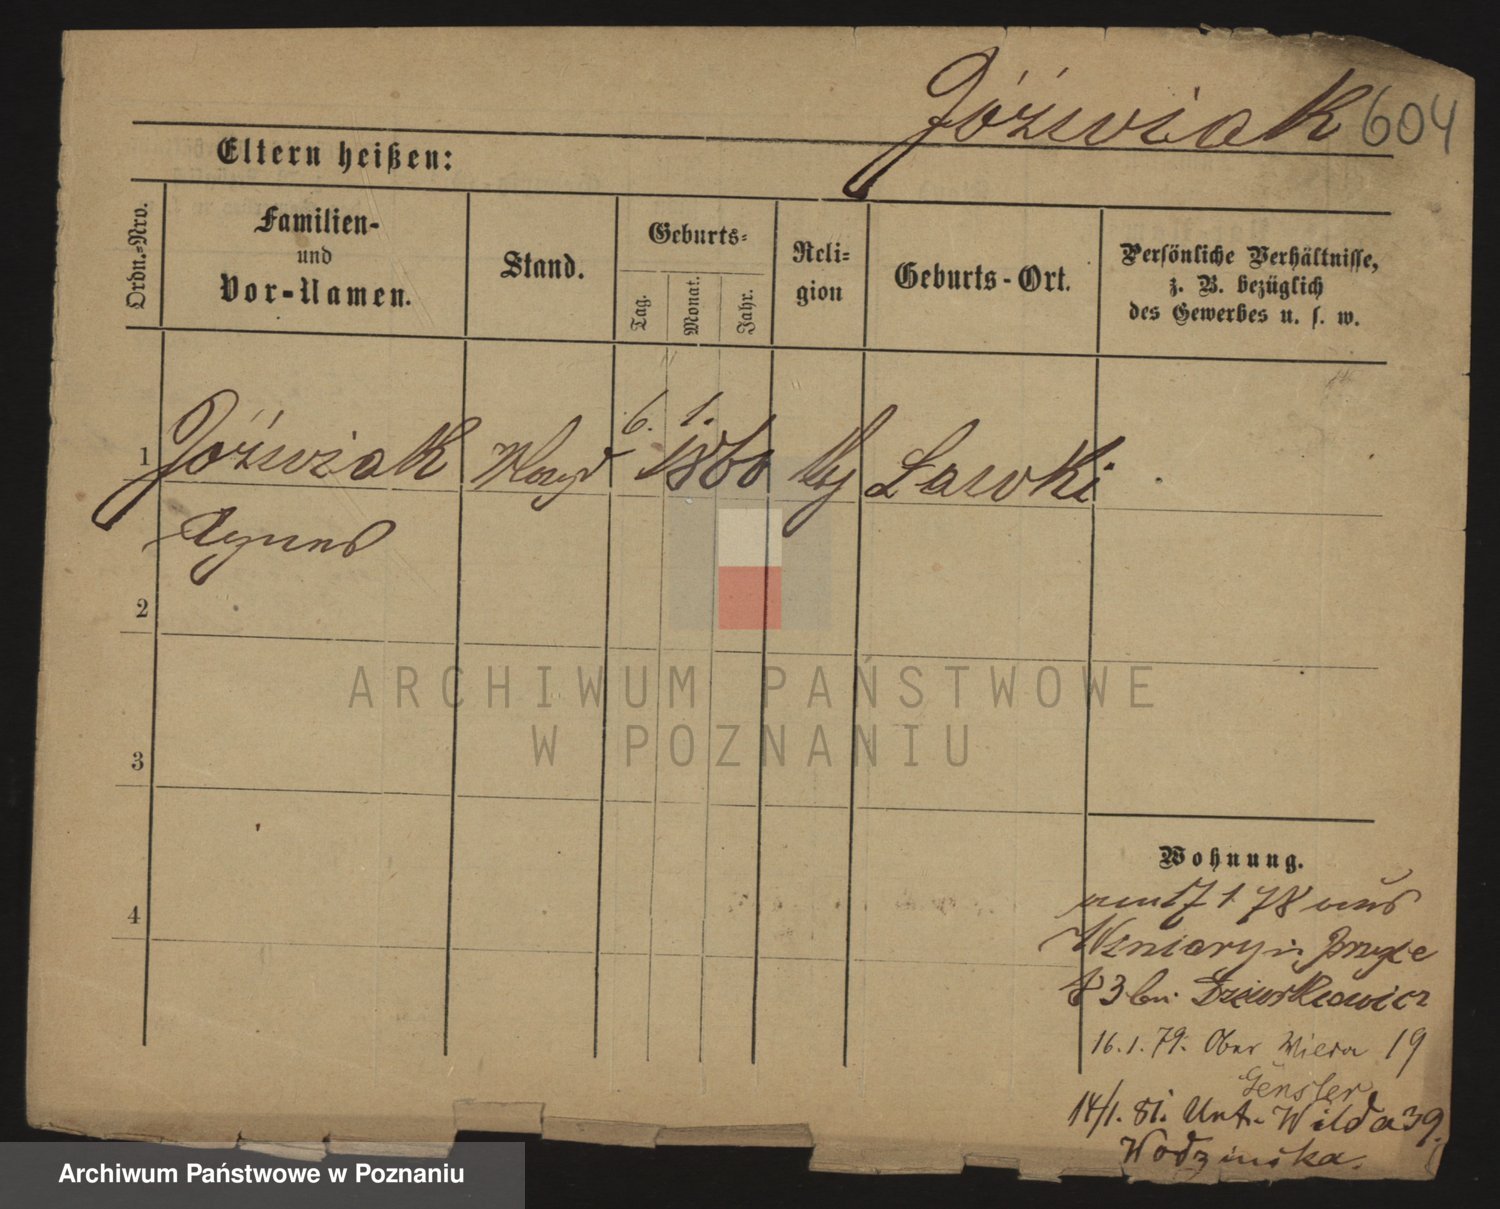 Jóźwiak 604
Eltern heißen:
Ordn.-Nro.
Familien-
und
Vor-Namen.
Stand.
Geburts-
Tag.
Monat.
Jahr.
Reli-
gion
Geburts-Ort.
Persönliche Verhältnisse,
z. B. bezüglich
des Gewerbes u. s. w.
1 Jóźwiak 6. 1. 1860 Ławki
Agnes
2
3
4
ARCHIWUM PAŃSTWOWE
W POZNANIU
Wohnung.
am 17 1 78 aus
83 bei
16.1.79. Ober Wilda 19
Gensler
14/1. 81. Unt. Wilda 39.
Wodzinska.
Archiwum Państwowe w Poznaniu